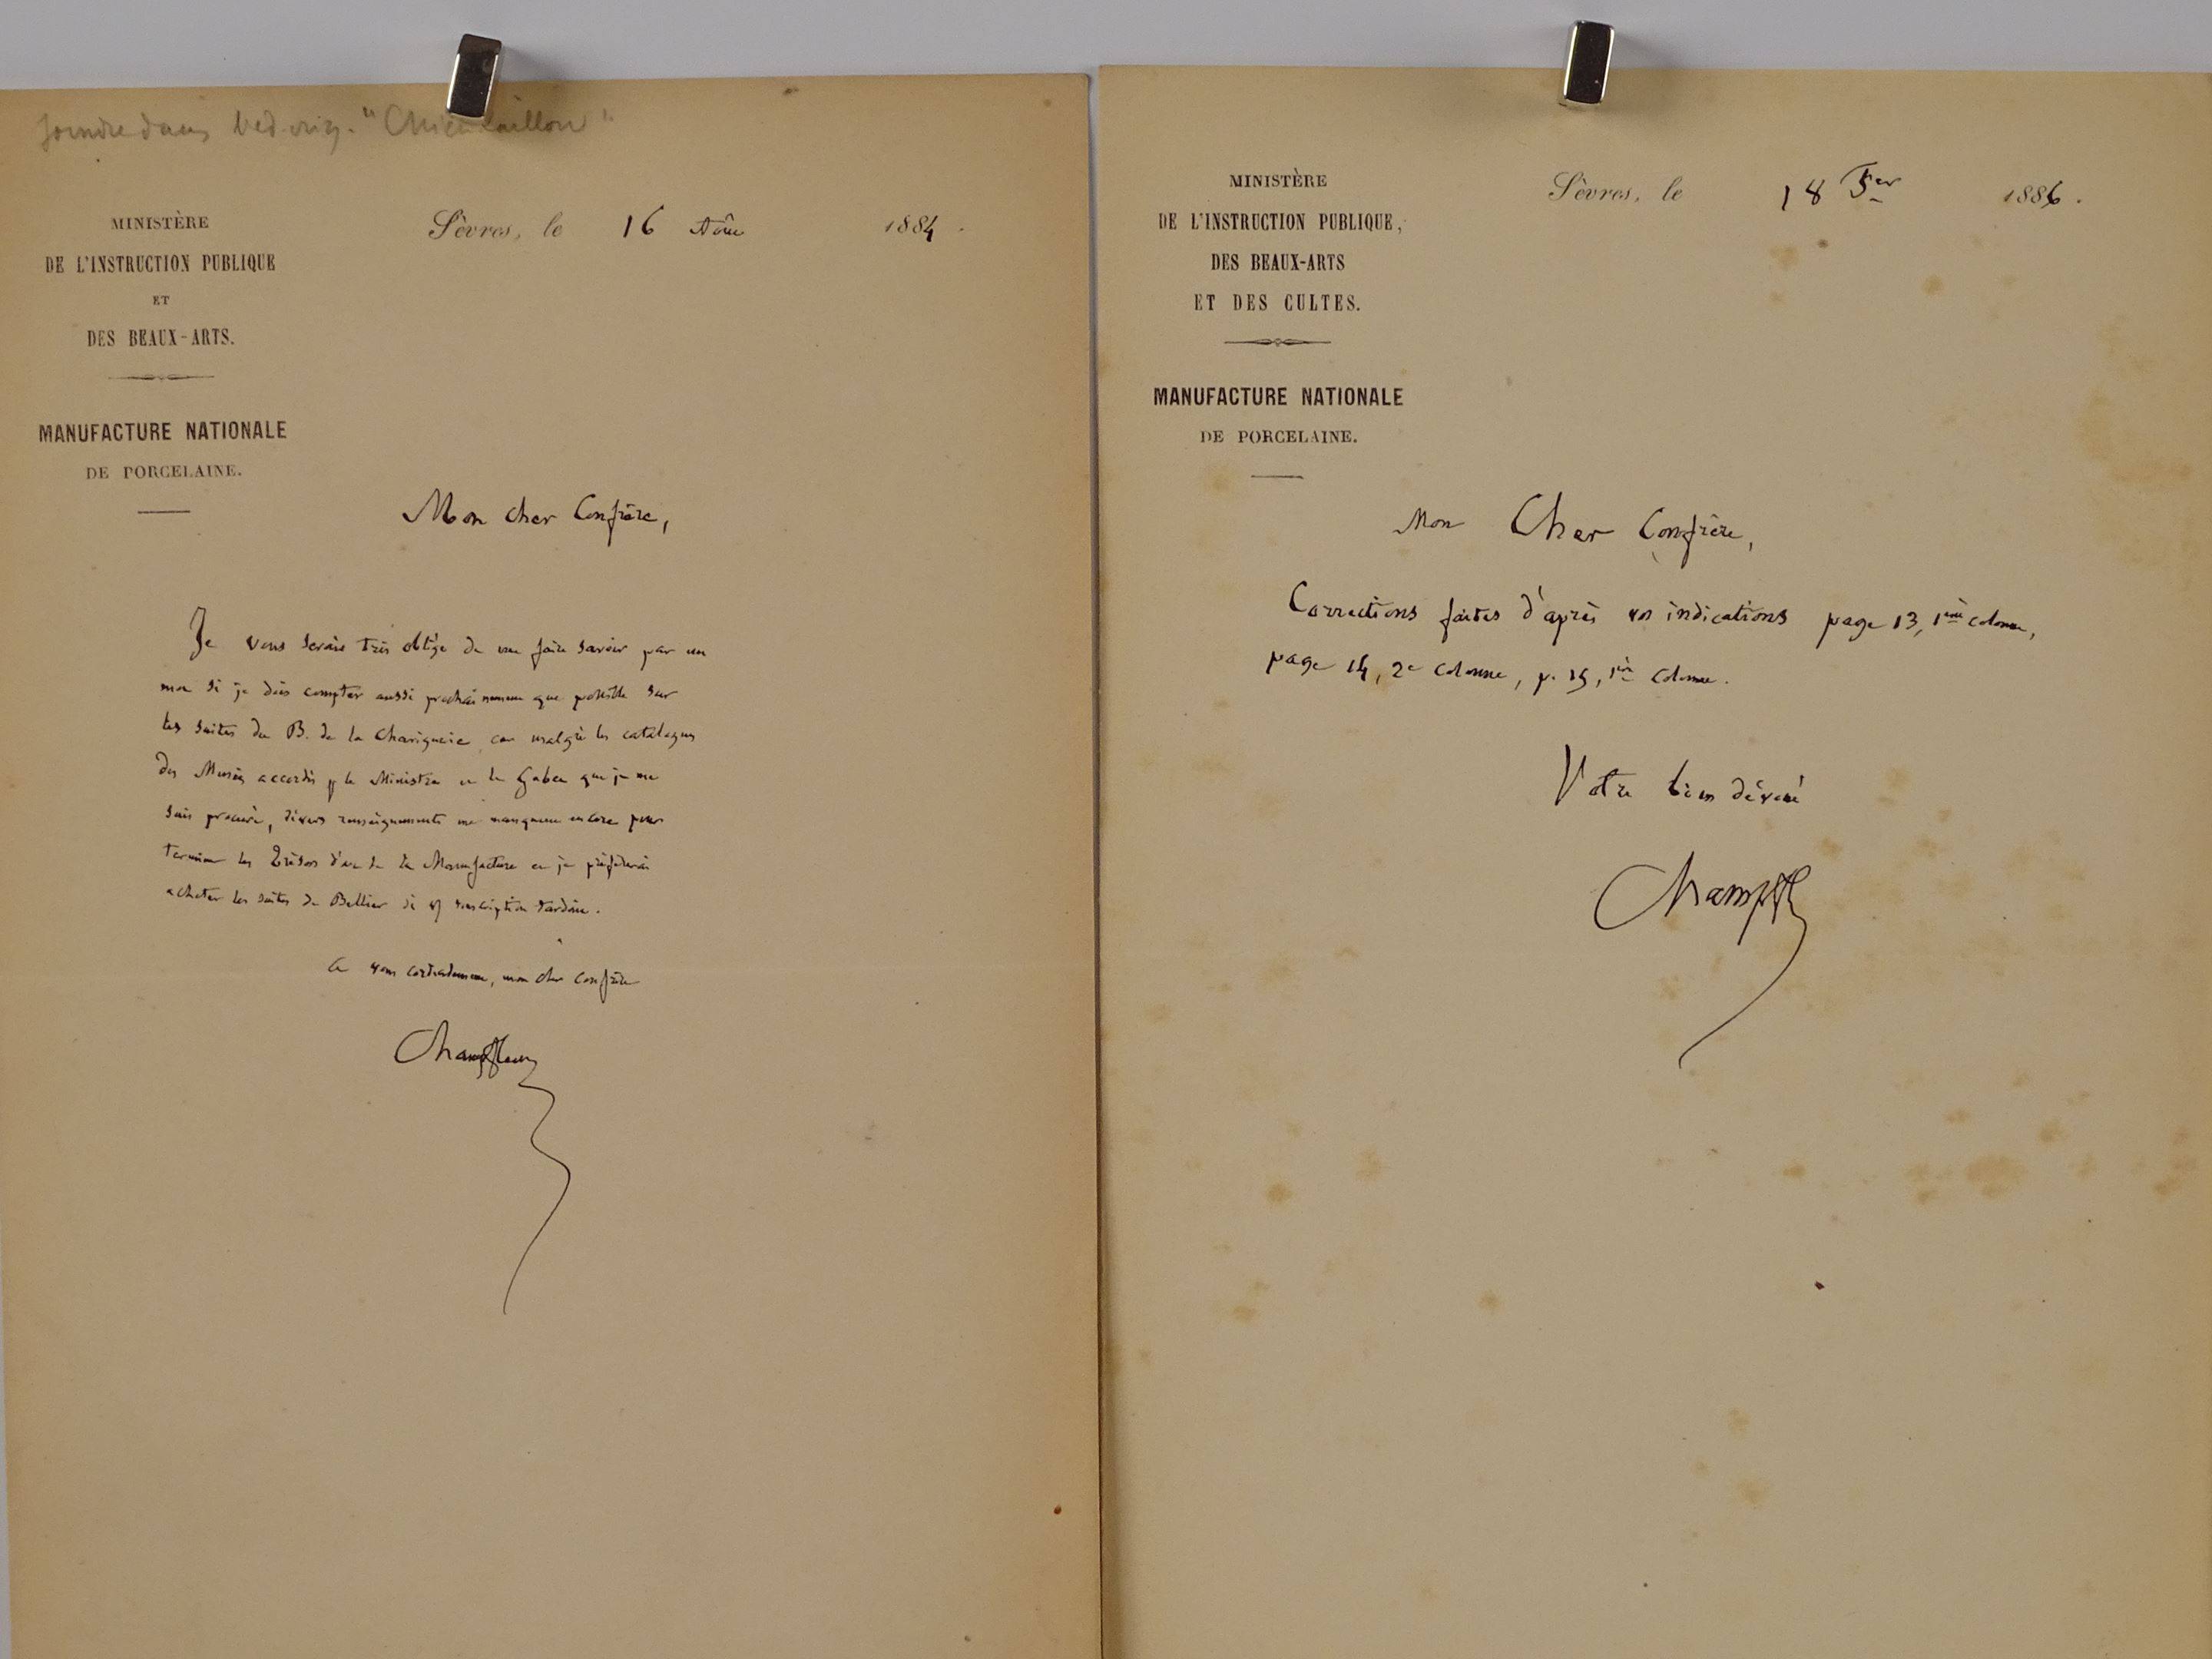 joindre dans "Chien Caillou"
MINISTÈRE
DE L'INSTRUCTION PUBLIQUE
ET
DES BEAUX-ARTS.
MANUFACTURE NATIONALE
DE PORCELAINE.
Sèvres, le 16 Aôut 1884.
Mon cher Confrère,
Je vous serais très obligé de me faire savoir par un
mot si je dois compter aussi prochainement que possible sur
les suites du B. de la Chavignerie car malgré les catalogues
des Musées accordés p le Ministre et le Gabet que je me
suis procuré, divers renseignements me manquent encore pour
terminer les Trésors d'art de la Manufacture et je préfèrerais
acheter les suites de Bellier si souscription tardive.
A vous cordialement, mon cher confrère
Champfleury
MINISTÈRE
DE L'INSTRUCTION PUBLIQUE,
DES BEAUX-ARTS
ET DES CULTES.
MANUFACTURE NATIONALE
DE PORCELAINE.
Sèvres, le 18 1886.
Mon Cher Confrère,
Corrections faites d'après vos indications page 13, 1ère colonne,
page 14, 2e colonne, p. 15, 1ère colonne.
Votre bien dévoué
Champfl